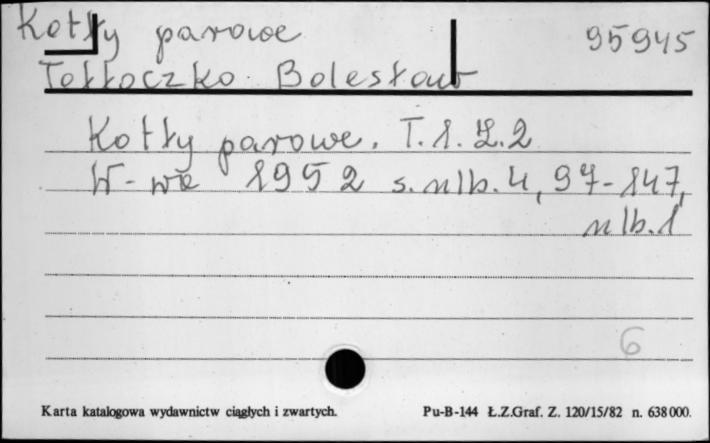 Kotły parowe 95945
Tołłoczko Bolesław
Kotły parowe. T.1. Z.2
W-wa 1952 s. nlb. 4, 97-147,
nlb. 1
6
Karta katalogowa wydawnictw ciągłych i zwartych. Pu-B-144 Ł.Z.Graf. Z. 120/15/82 n. 638000.